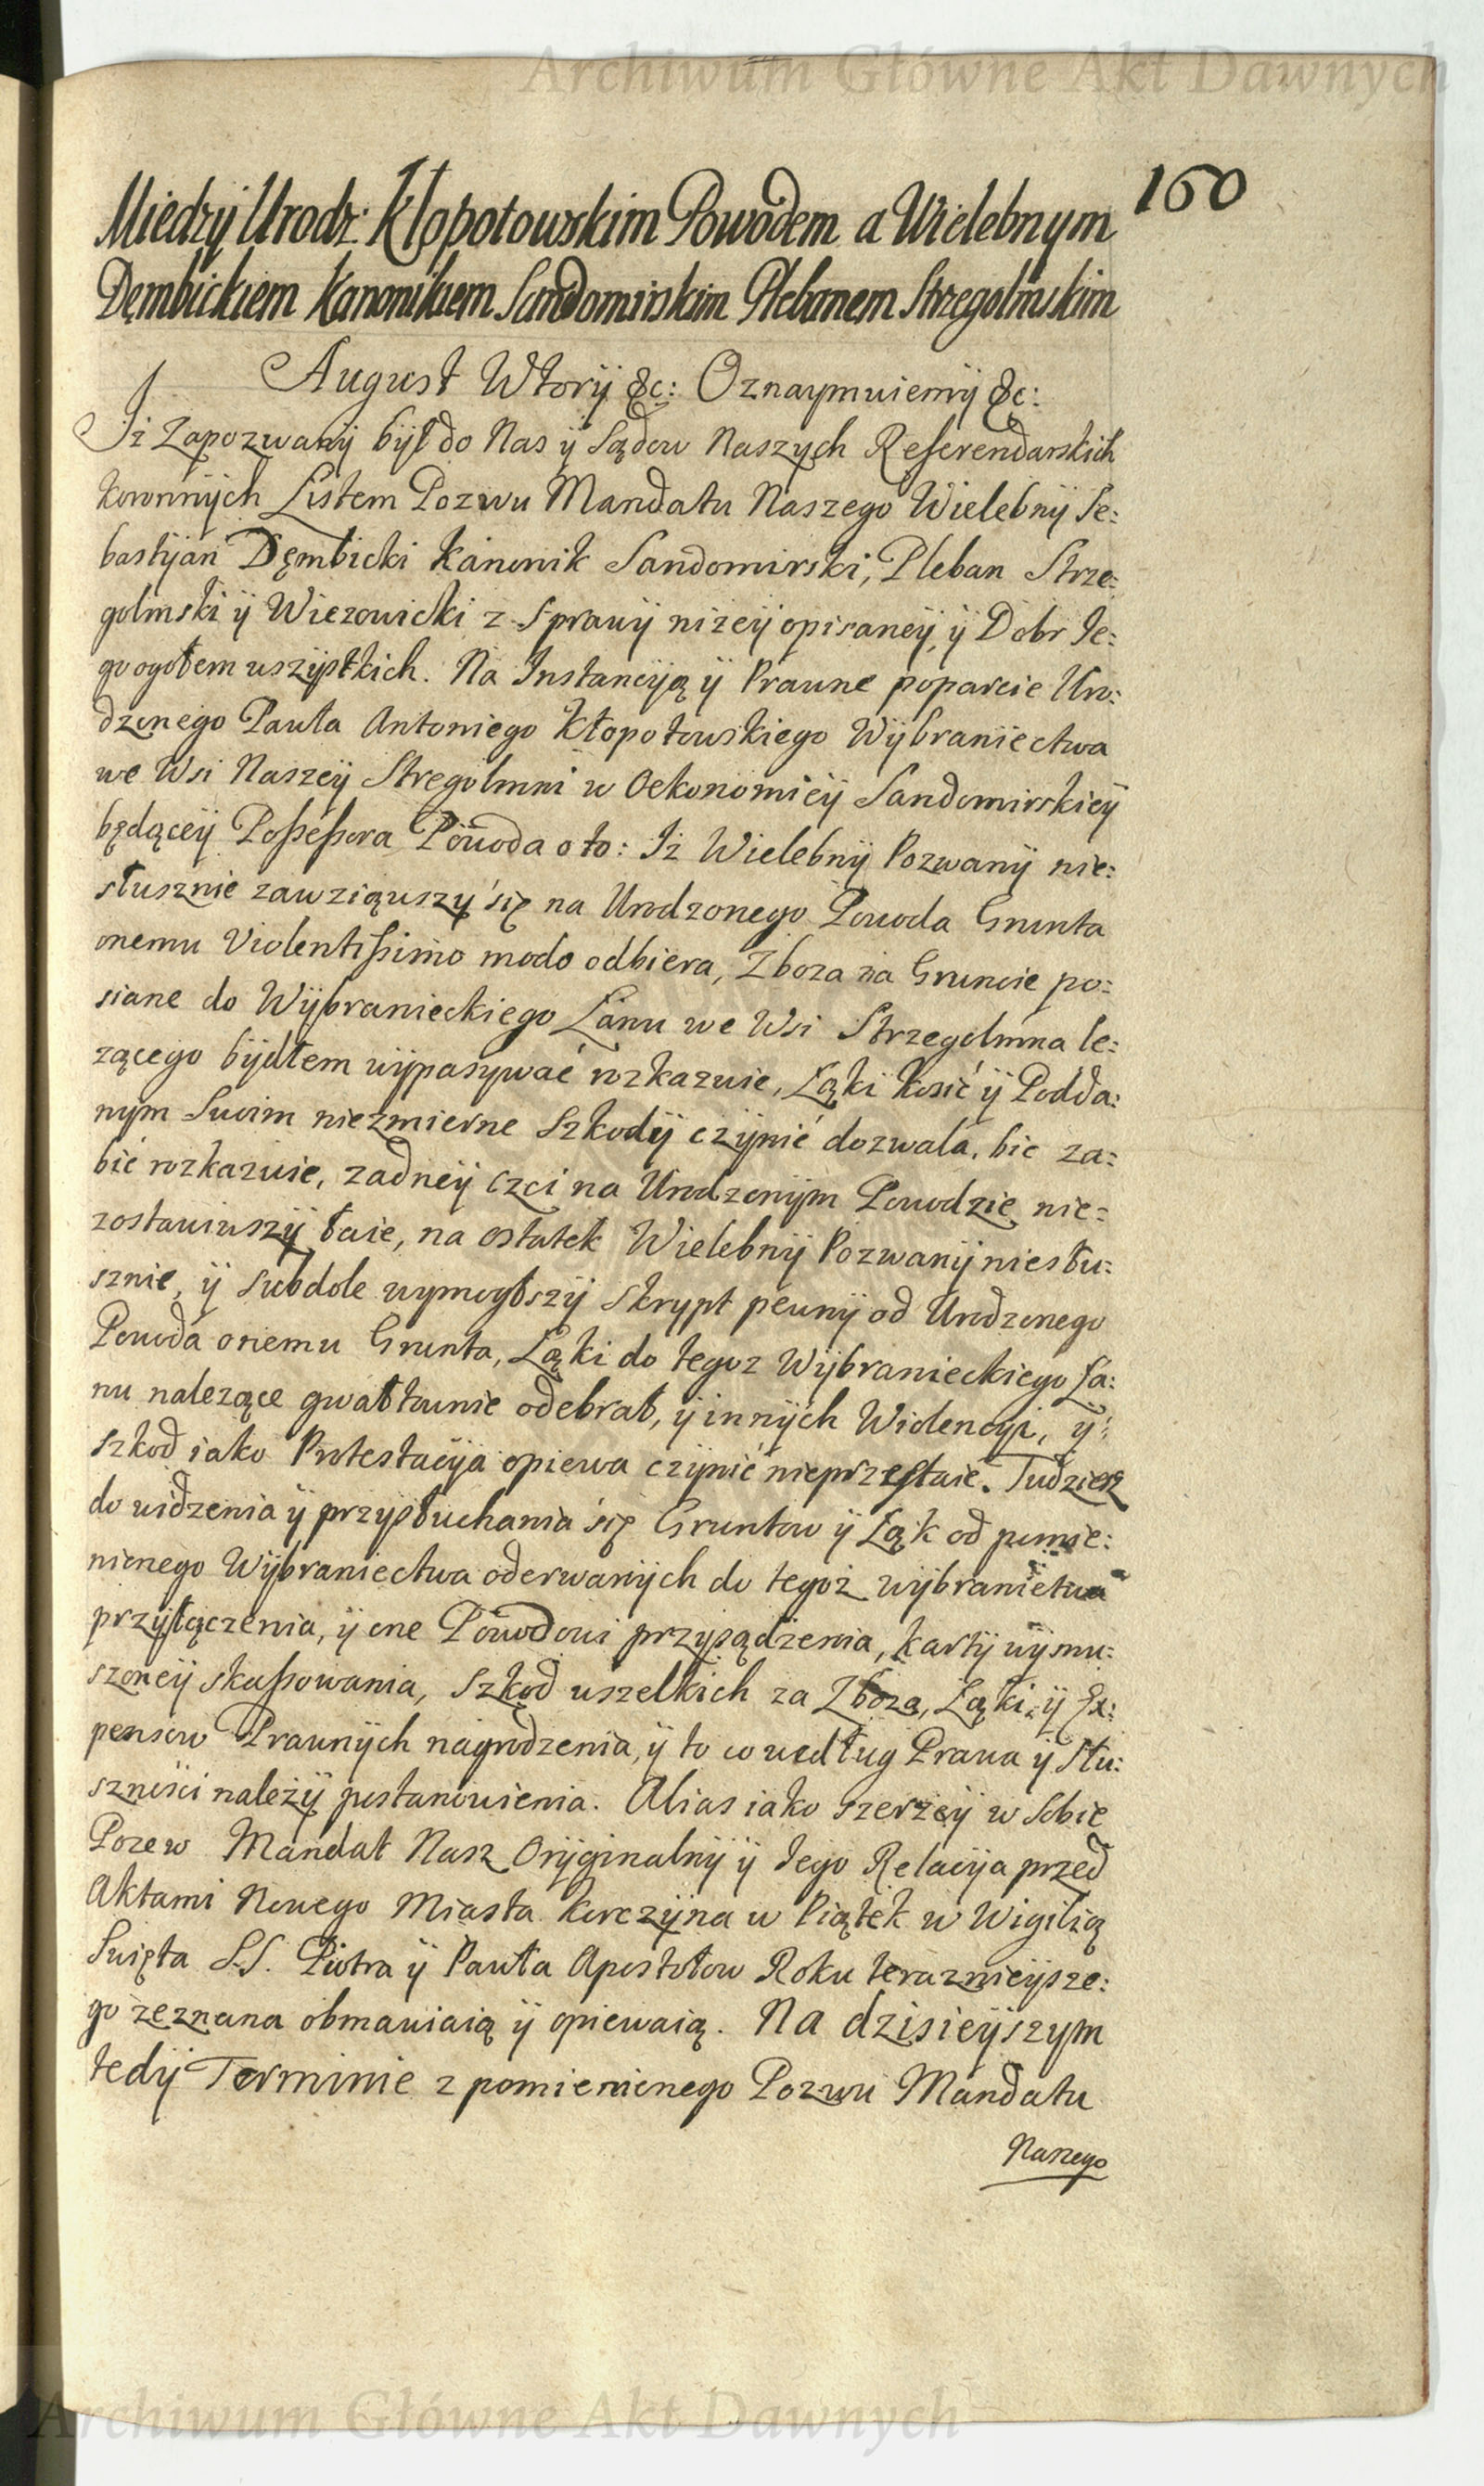 Archiwum Główne Akt Dawnych
160
Miedzÿ Urodz: Kłopotowskim Powodem a Wielebnym
Dęmbickiem Kanonikiem Sandomirskim Plebanem Strzegolmskim
August Wtorÿ &c: Oznaymuiemÿ &c:
Iż Zapozwanÿ bÿł do Nas ÿ Sądow Naszych Referendarskich
koronnÿch Listem Pozwu Mandatu Naszego Wielebnÿ Se:
bastÿan Dęmbicki Kanonik Sandomirski, Pleban Strze:
golmski ÿ Wiezowicki z Sprawÿ niżeÿ opisaneÿ, ÿ Dobr Ie:
go ogołem wszÿstkich. Na Instancÿą ÿ Prawne poparcie Uro:
dzonego Pawła Antoniego Kłopotowskiego Wÿbraniectwa
we Wsi Naszeÿ Stregolmni w Oekonomieÿ Sandomirskieÿ
będąceÿ Possessora Powoda o to: Iż Wielebnÿ Pozwanÿ nie:
słusznie zawziąwszÿ się na Urodzonego Powoda Grunta
onemu Violentissimo modo odbiera, Zboza na Gruncie po:
siane do Wÿbranieckiego Łanu we Wsi Strzegolmna le:
zącego bÿdłem wÿpasÿwać rozkazuie, Łąki kosić ÿ Podda:
nÿm Swoim niezmierne Szkodÿ czÿnić dozwala, bic za:
bić rozkazuie, zadneÿ czci na Urodzonÿm Powodzie nie:
zostawiwszÿ łaie, na ostatek Wielebnÿ Pozwanÿ niesłu:
sznie, ÿ subdole wymogłszÿ skrypt pewnÿ od Urodzonego
Powoda onemu Grunta, Łąki do tegoz Wÿbranieckiego Ła:
nu nalezące gwałtownie odebrał, ÿ innÿch Wiolencyi, ÿ:
szkod iako Protestacÿa opiewa czÿnić nieprzestaie. Tudziesz
do widzenia ÿ przysłuchania się Gruntow ÿ Łąk od pomie:
nionego Wÿbraniectwa oderwanÿch do tegoż wÿbranietwa
przyłączenia, ÿ one Powodowi przysądzenia, kartÿ wÿmu:
szoneÿ skassowania, Szkod wszelkich za Zboza, Łąki, ÿ Ex:
pensow Prawnÿch nagrodzenia, ÿ to co według Prawa ÿ słu:
szności należÿ postanowienia. Alias iako szerzeÿ w Sobie
Pozew Mandat Nasz Orÿginalnÿ ÿ Iego Relacÿa przed
Aktami Nowego Miasta Korczÿna w Piątek w Wigilią
Swięta S.S. Piotra ÿ Pawła Apostołow Roku teraznieÿsze:
go zeznana obmawiaią ÿ opiewaią. Na dzisieÿszym
tedÿ Terminie z pomienionego Pozwu Mandatu
Naszego
Archiwum Główne Akt Dawnych